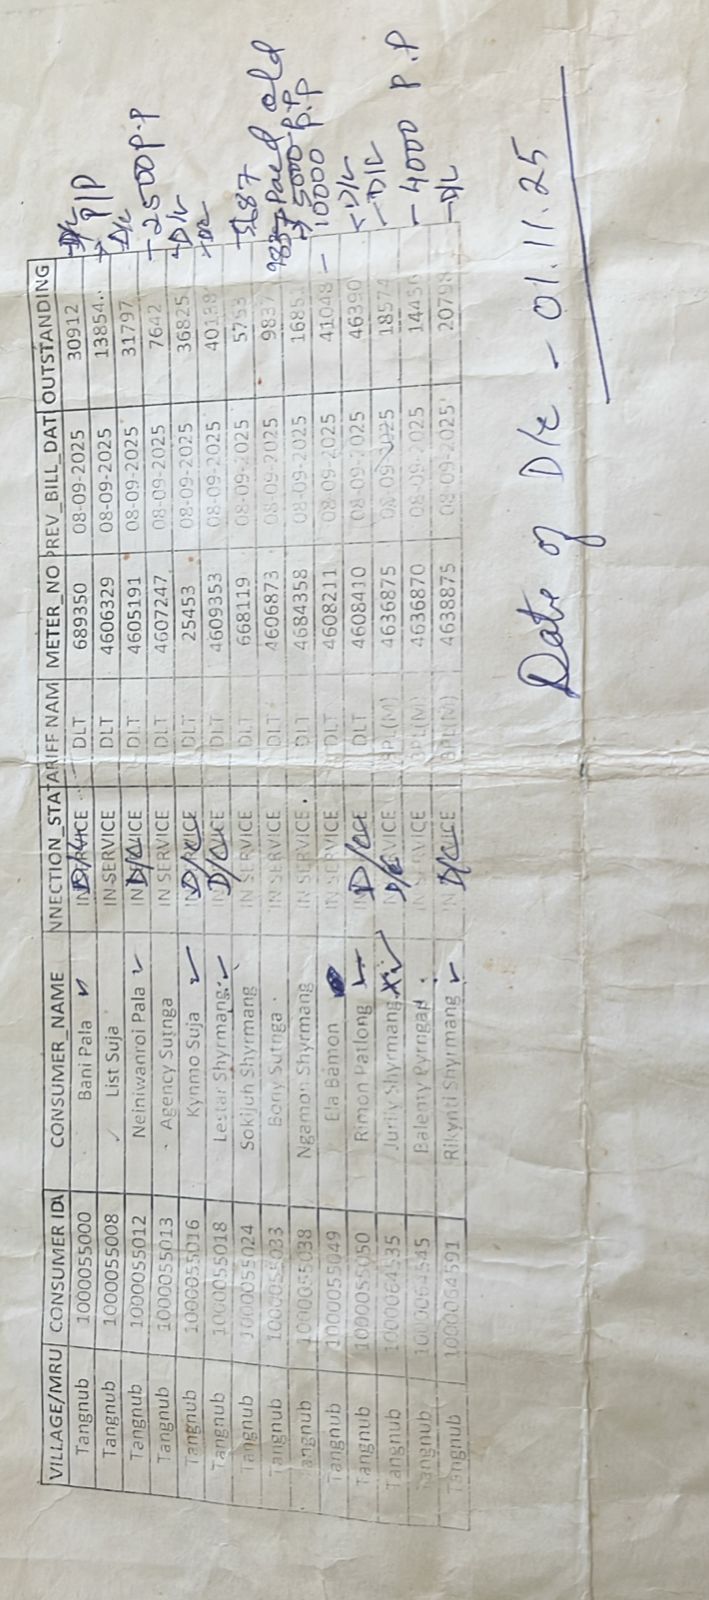 VILLAGE/MRU CONSUMER ID CONSUMER_NAME NNECTION_STA TARIFF NAM METER_NO PREV_BILL_DAT OUTSTANDING
Tangnub 1000055000 Bani Pala ✓ IN SERVICE D/C DLT 689350 08-09-2025 30912 D/C
Tangnub 1000055008 List Suja IN SERVICE DLT 4606329 08-09-2025 13854 P/P
Tangnub 1000055012 Neiniwanroi Pala ✓ IN SERVICE D/C DLT 4605191 08-09-2025 31797 D/C
Tangnub 1000055013 Agency Sutnga IN SERVICE DLT 4607247 08-09-2025 7642 - 2500 P.P
Tangnub 1000055016 Kynmo Suja ✓ IN SERVICE D/C DLT 25453 08-09-2025 36825 - D/C
Tangnub 1000055018 Lestar Shyrmang ✓ IN SERVICE D/C DLT 4609353 08-09-2025 D/C
Tangnub 1000055024 Sokijuh Shyrmang IN SERVICE DLT 668119 08-09-2025 5753
Tangnub 1000055033 Bony Sutnga IN SERVICE DLT 4606873 08-09-2025 9837 Paid old
Tangnub 1000055038 Ngamon Shyrmang IN SERVICE DLT 4684358 08-09-2025 5000 P.P
Tangnub 1000055049 Ela Bamon IN SERVICE DLT 4608211 08-09-2025 41048 - 10000 P.P
Tangnub 1000055050 Rimon Patlong ✓ IN D/C DLT 4608410 08-09-2025 46390 D/C
Tangnub 1000064535 Shyrmang IN SERVICE D/C BPL(M) 4636875 08-09-2025 18574 - D/C
Tangnub 1000064545 Balemy Pyrngap BPL(M) 4636870 08-09-2025 - 4000 P.P
Tangnub 1000064591 Rikynti Shyrmang ✓ IN D/C BPL(M) 4638875 08-09-2025 20798 - D/C
Date of D/c - 01.11.25